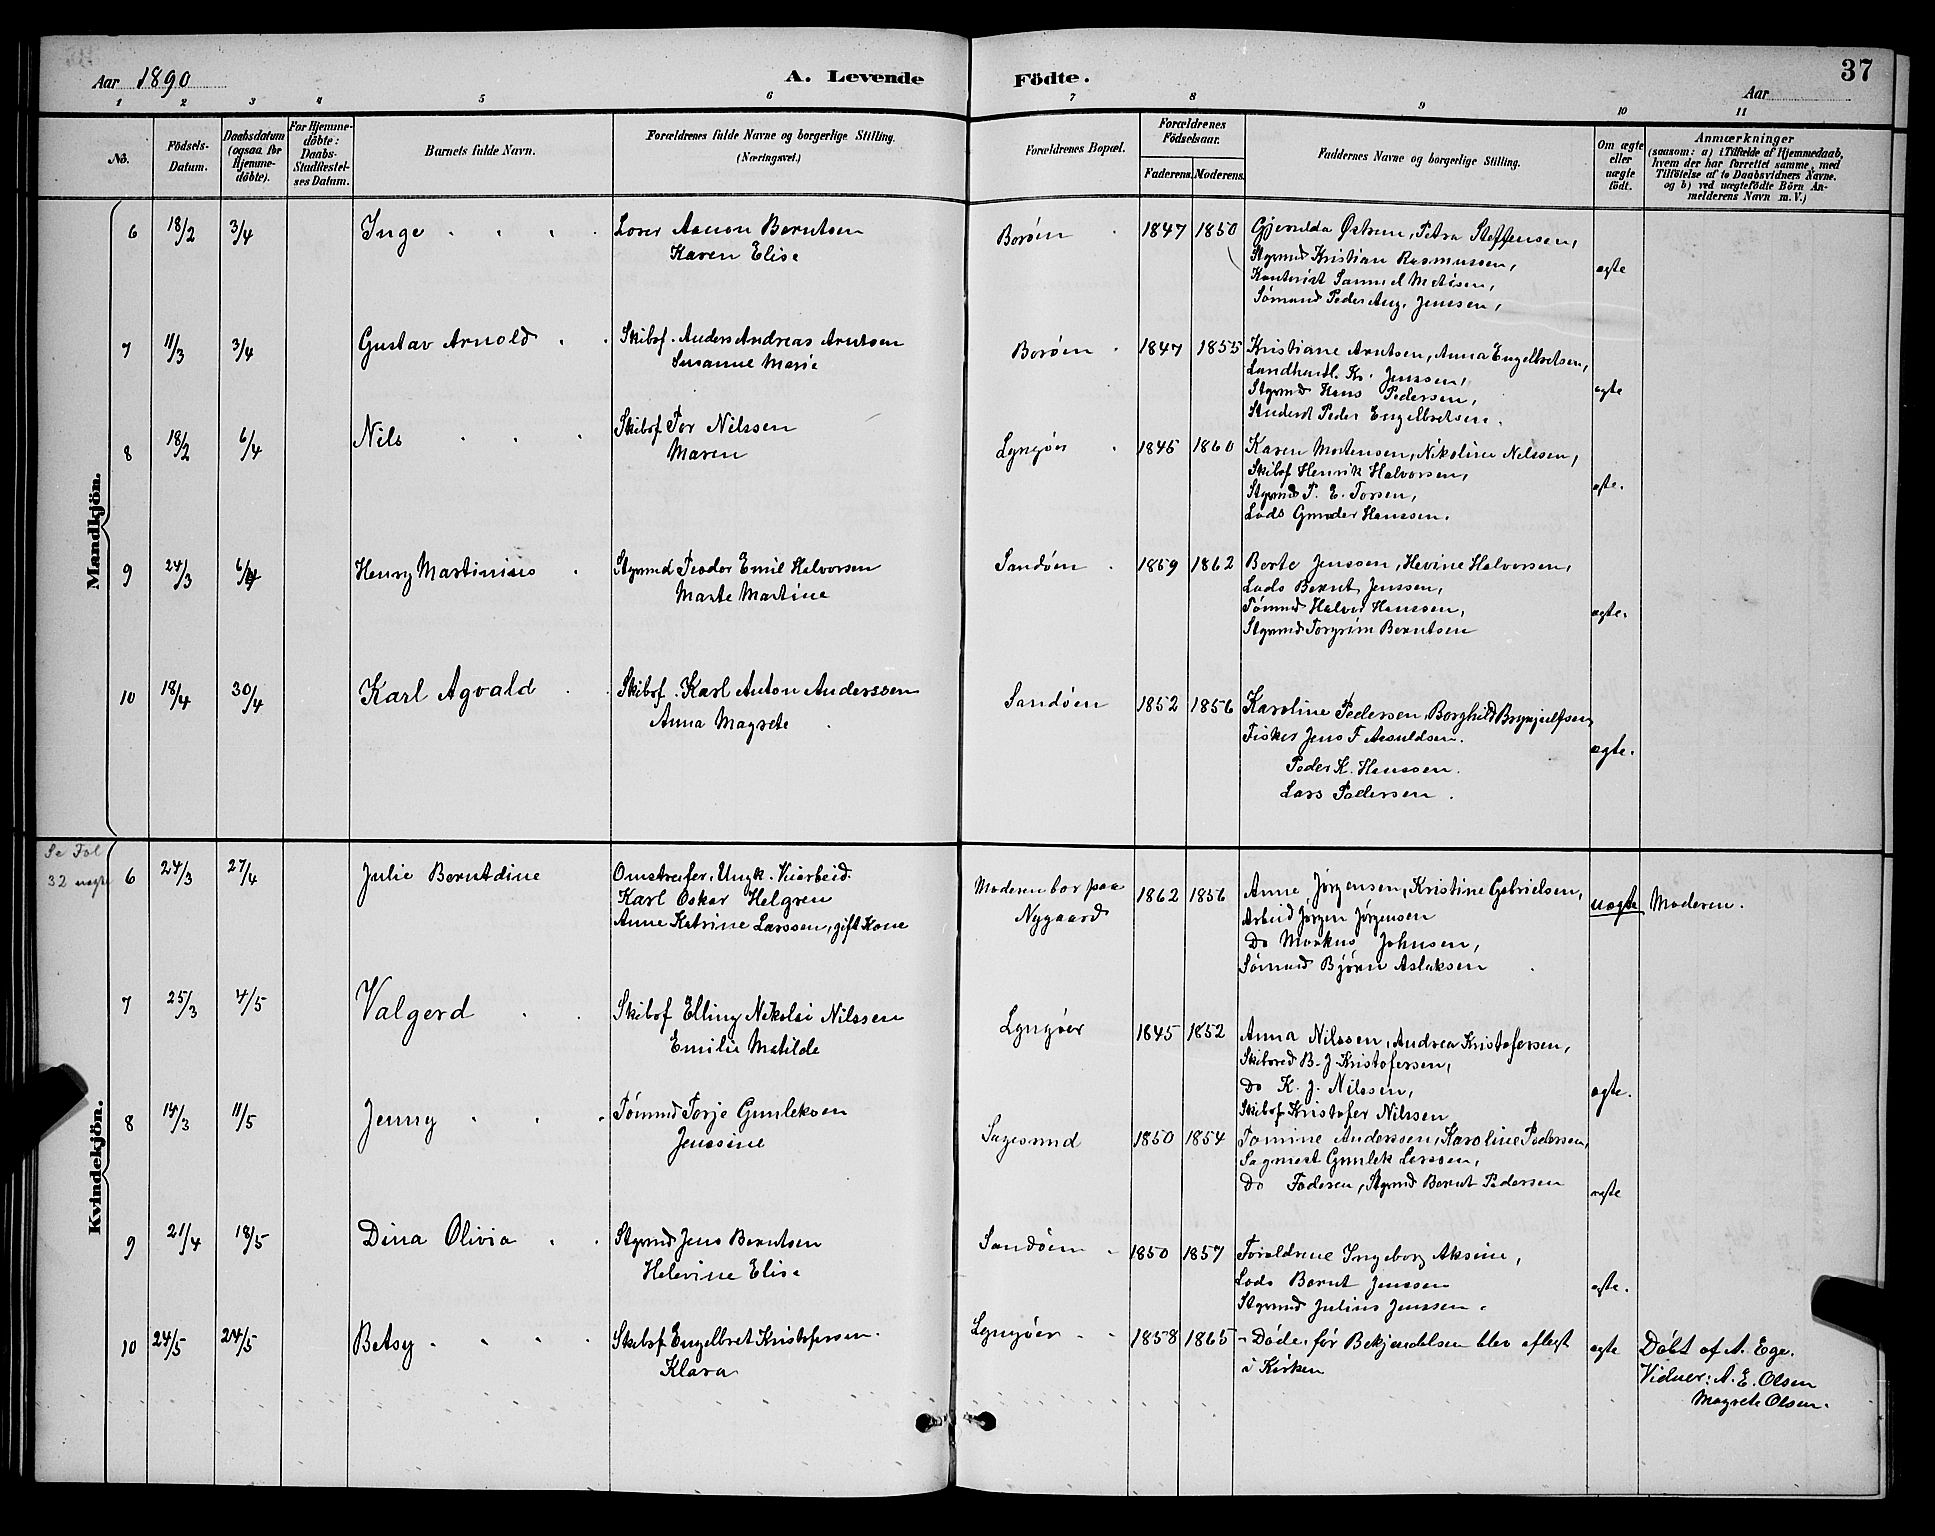 Aar 1890
A. Levende Födte.
37
Aar
1 2 3 4 5 6 7 8 9 10 11
No.
Födsels-Datum.
Daabsdatum (ogsaa for Hjemmedöbte).
For Hjemmedöbte: Daabs-Stadfestelses Datum.
Barnets fulde Navn.
Forældrenes fulde Navne og borgerlige Stilling.
(Næringsvei.)
Forældrenes Bopæl.
Forældrenes Födselsaar.
Faderens. Moderens.
Faddernes Navne og borgerlige Stilling.
Om ægte eller uægte födt.
Anmærkninger
(saasom: a) i Tilfælde af Hjemmedaab,
hvem der har forrettet samme, med
Tilföielse af to Daabsvidners Navne.
og b) ved uægtefödte Börn Anmelderens Navn m. V.)
Mandkjön.
6 18/2 3/4 Inge Aanon Berntsen Borøen 1847 1850 Østrem, Petra Steffensen,
Karen Elise
Styrmd Kristian Rasmussen, ægte
Kontorist Samuel
Sømand Peder Aug. Jenssen,
7 11/3 3/4 Gustav Arnold Skibsf. Anders Andreas Arntsen Borøen 1847 1855 Kristiane Arntsen, Anna Engelbretsen,
Susanne Marie
Landhandl. Kr. Jenssen,
Styrmd Hans Pedersen, ægte
Student Peder Engelbretsen.
8 18/2 6/4 Nils Skibsf Tor Nilssen Lyngøer 1845 1860 Karen Mortensen, Nikoline Nilssen,
Maren
Skibsf Henrik Halvorsen,
Styrmd T. E. Torsen, ægte.
Lods Gunder Hanssen.
9 24/3 6/4 Henry Martinius Styrmd Teodor Emil Halvorsen Sandøen 1859 1862 Berte Jenssen, Hevine Halvorsen,
Marte Martine
Lods Bernt Jenssen,
Tømmd Halvor Hanssen, ægte.
Styrmd Torgrim Berntsen
10 18/4 30/4 Karl Agvald Skibsf. Karl Anton Anderssen Sandøen 1852 1856 Karoline Pedersen, Borghild Brynjulfsen,
Anna Magrete
Fisker Jens T Asuldsen.
Peder K. Hanssen. ægte.
Lars Pedersen.
Kvindekjön.
Se Fol
32 uægte
6 24/3 27/4 Julie Berntdine Omstreifer, Ungk. Veiarbeid. Moderen bor paa Nygaard 1862 1856 Anne Jørgensen, Kristine Gabrielsen, uægte Moderen.
Karl Oskar Helgren
Arbeid Jørgen Jørgensen
Anne Katrine Larssen, gift Kone
Do Markus Johnsen,
Sømand Bjørn Aslaksen
7 25/3 4/5 Valgerd Skibsf Elling Nikolai Nilssen Lyngøer 1845 1852 Anna Nilssen, Andrea Kristofersen,
Emilie Matilde
Skibsred B. J Kristofersen,
Do K. J. Nilssen, ægte.
Skibsf Kristofer Nilssen
8 14/3 11/5 Jenny Tømmd Torje Gunleksen Sagesund 1850 1854 Tomine Anderssen, Karoline Pedersen,
Jenssine
Sagmest Gunlek Larssen,
Do Faderen, Styrmd Bernt Pedersen ægte
9 21/4 18/5 Dina Olivia Styrmd Jens Berntsen Sandøen 1850 1857 Foreldrene Ingeborg Aksine,
Helevine Elise
Lods Bernt Jenssen ægte.
Styrmd Julius Jenssen.
10 24/5 24/5 Betsy Skibsf Engelbret Kristofersen. Lyngøer 1858 1865 Døde før Bekjendelsen blev aflagt ægte Døbt af A. Ege.
Klara
i Kirken
Vidner: A. E. Olsen
Magrete Olsen.